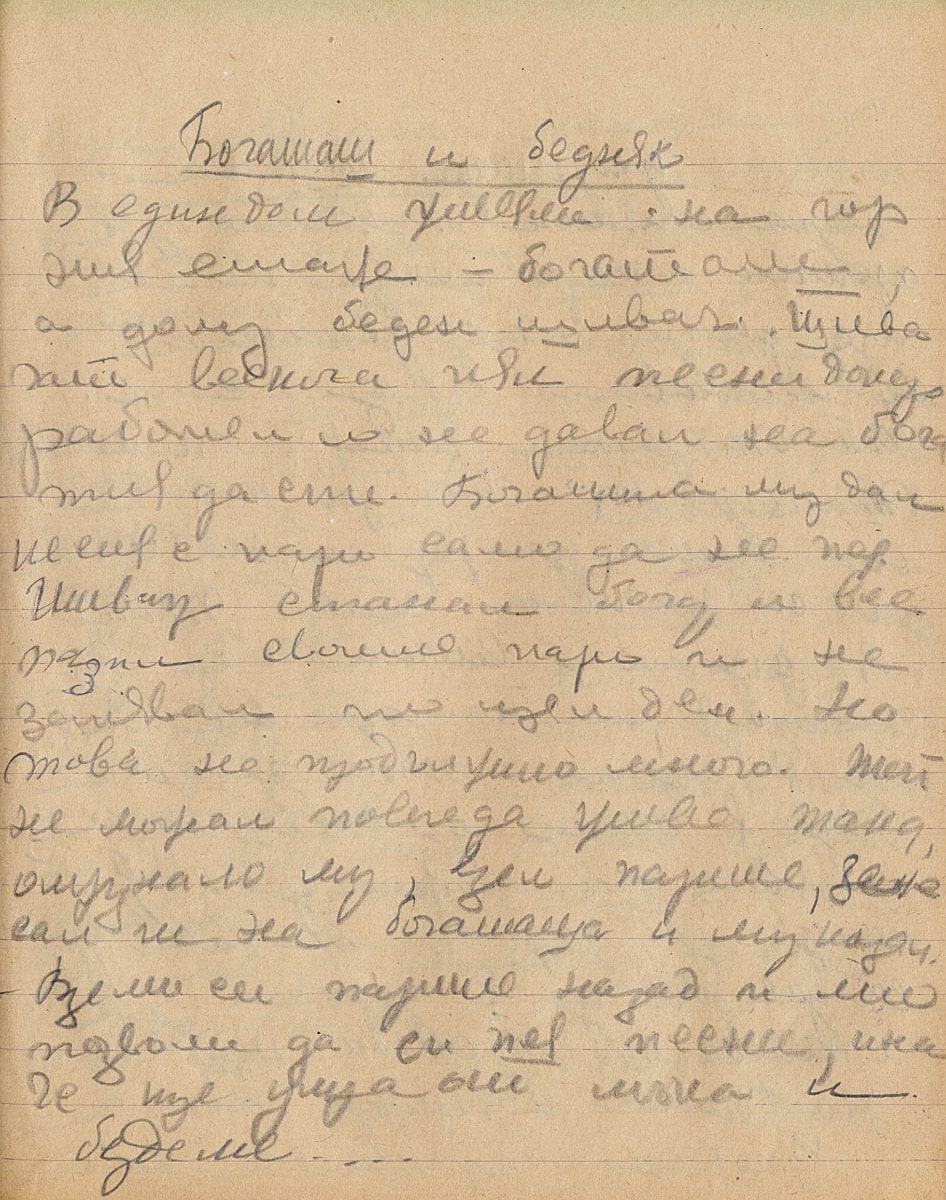 Богаташ и бедняк
В един дом живели: на гор
ния етаж - богаташ,
а долу беден шивач. Шива
чът весного пял песни долу
работел и не давал на бога
тия да спи. Богаташа му дал
песня с пари само да не пее.
Шивачу станал богат и все
пазил своите пари и не
запявал по цел ден. Но
това не продължило много. Той
не можал повече да живее така,
омръзнало му, взел парите, зане
сал ги на богаташа и му казал.
- Вземи си парите назад и ми
позволи да си пея песни, ина
че ще умра от мъка и
бездене....